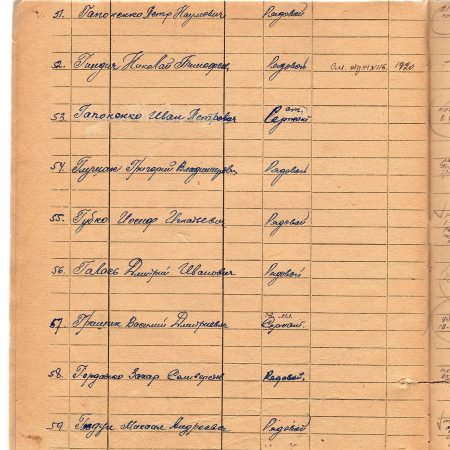 51. Гапоненко Петр Наумович Рядовой
52. Гиндич Николай Тимофее. Рядовой См. 1920
53. Гапоненко Иван Петрович ст. Сержант
54. Григорий Владимиров Рядовой
55. Губко Иосиф Игнатьевич Рядовой
56. Галась Дмитрий Иванович Рядовой
57. Грищик Василий Дмитриевич мл. Сержант.
58. Гордиенко Захар Рядовой.
59. Михаил Андреевич Рядовой